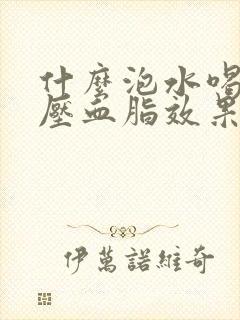 什麼泡水喝
壓血脂效果
伊萬諾維奇